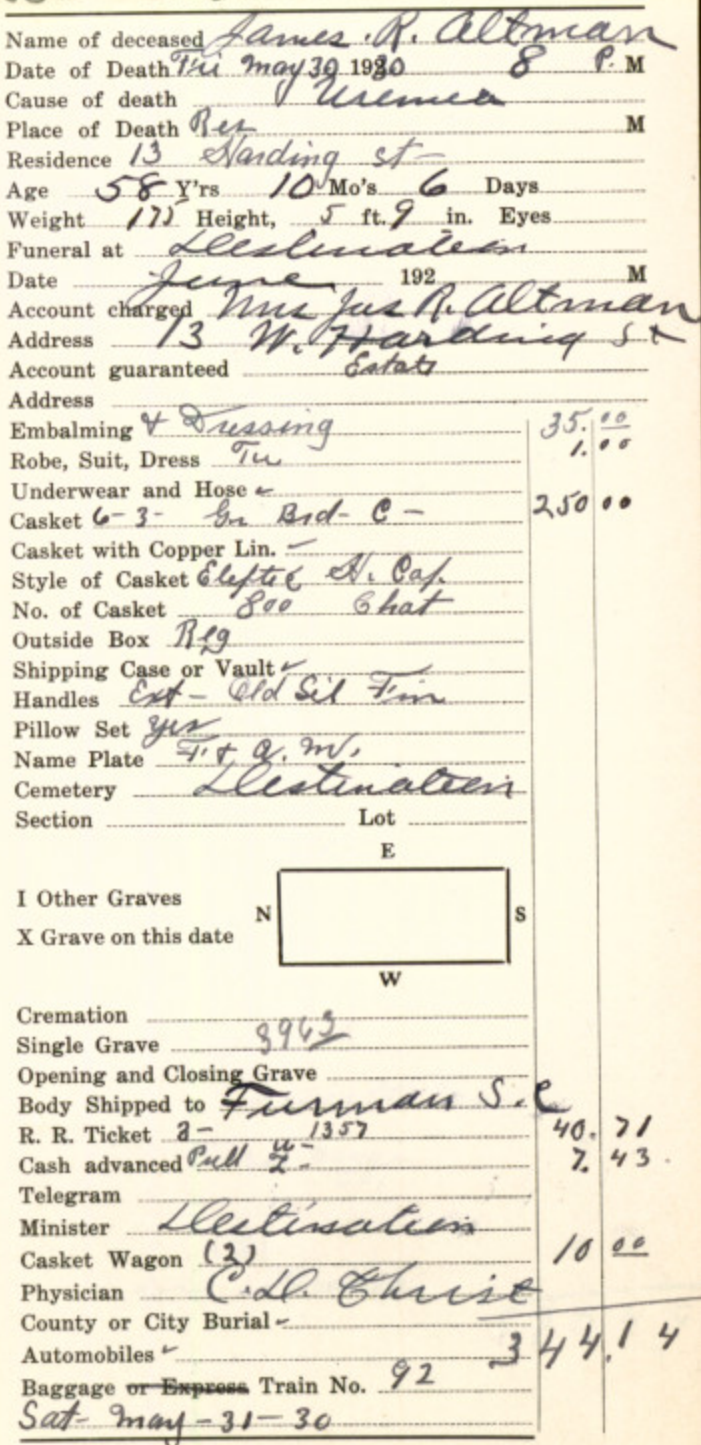 Name of deceased James. R. Altman
Date of Death Fri May 30 1930 8 P. M
Cause of death Uremia
Place of Death Res M
Residence 13 Harding st
Age 58 Y'rs 10 Mo's 6 Days
Weight 175 Height, 5 ft. 9 in. Eyes
Funeral at Destination
Date June 192 M
Account charged Mrs Jas R. Altman
Address 13 W. Harding St
Account guaranteed Estate
Address
Embalming & Dressing 35.00
Robe, Suit, Dress Tie 1.00
Underwear and Hose
Casket 6-3- Gr Brd- C - 250 00
Casket with Copper Lin. -
Style of Casket H. Cap.
No. of Casket 800 Chat
Outside Box Reg
Shipping Case or Vault
Handles Ext - Old Sil Fin
Pillow Set yes
Name Plate F. & A. M.
Cemetery Destination
Section Lot
E
I Other Graves
N S
X Grave on this date
W
Cremation
Single Grave
Opening and Closing Grave
Body Shipped to Furman S. C
R. R. Ticket 2- 1357 40.71
Cash advanced Pull 7.43
Telegram
Minister Destination
Casket Wagon (2) 10 00
Physician C. D. Christ
County or City Burial -
Automobiles 344.14
Baggage or Express Train No. 92
Sat- May-31-30